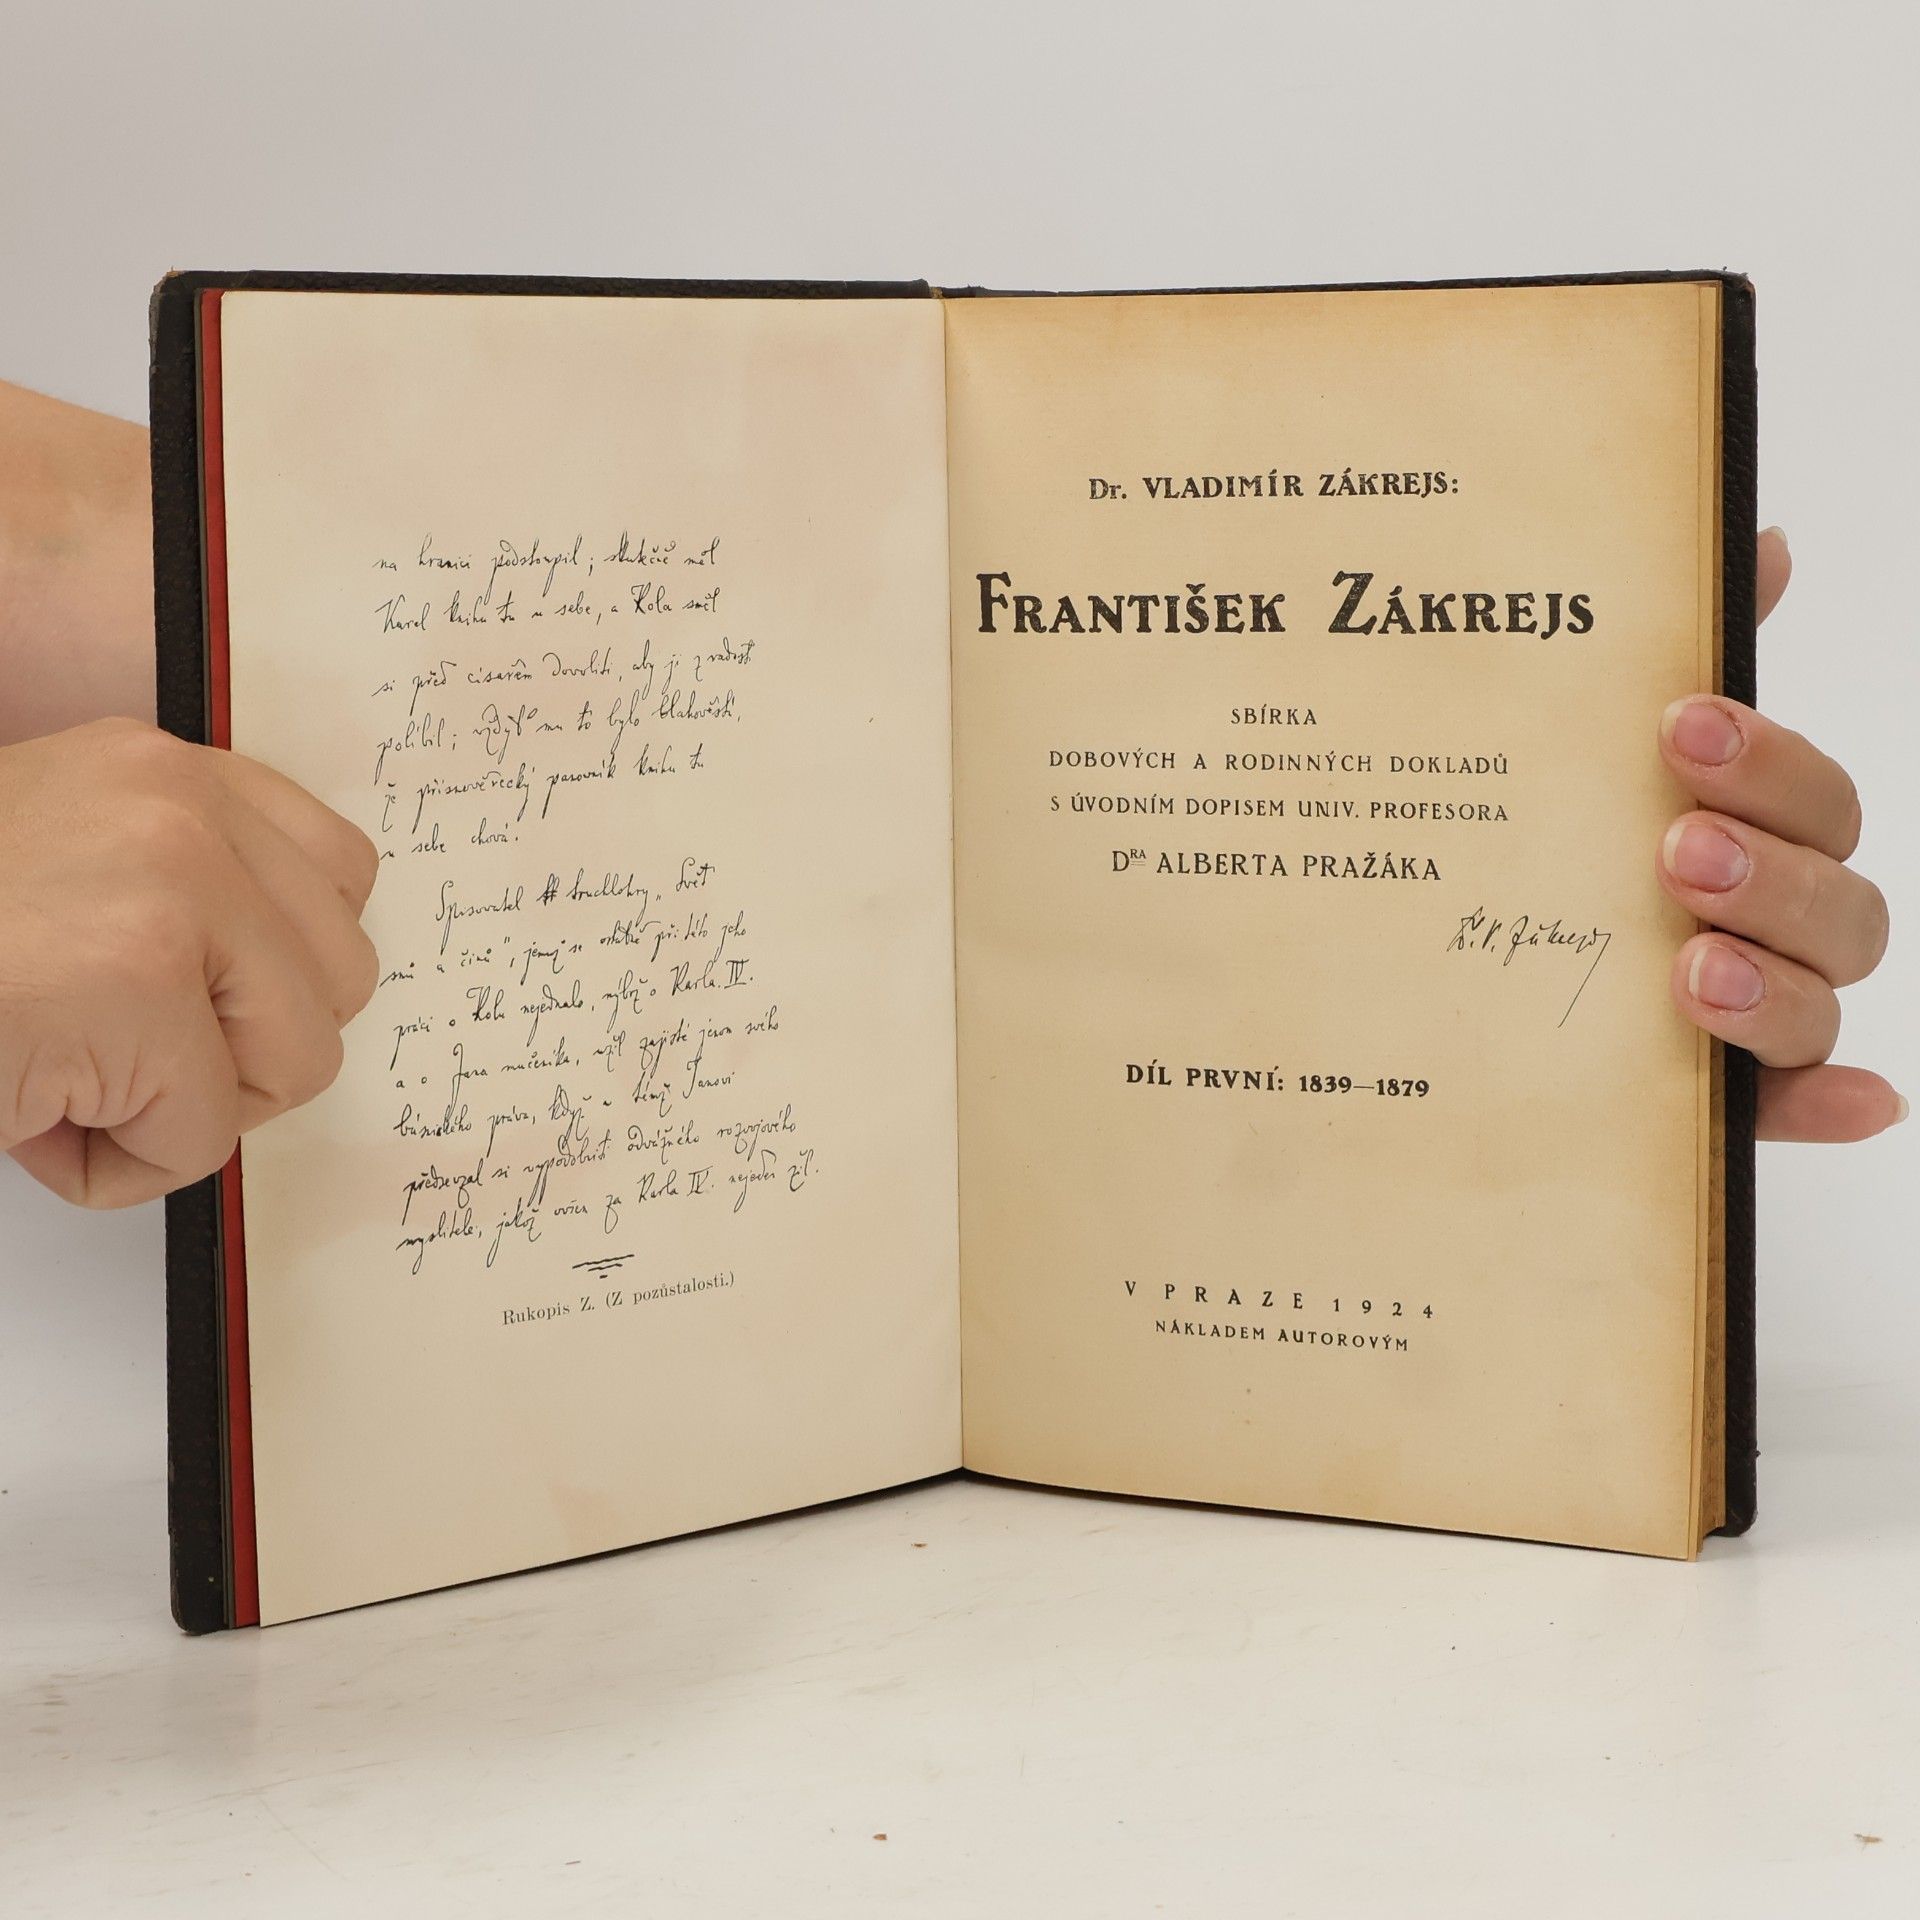 na hranici podstoupil; skutečně měl
Karel knihu tu u sebe, a Kola směl
si před císařem dovoliti, aby ji z radosti
políbil; vždyť mu to bylo blahověstí,
že přísnověrecký panovník knihu tu
u sebe chová.
Spisovatel truchlohry „Svět
snů a činů", jemuž se ostatně při této jeho
práci o Kolu nejednalo, nýbrž o Karla IV.
a o Jana mučeníka, užil zajisté jenom svého
básnického práva, když u témž Janovi
předsevzal si vypodobniti odvážného rozvojového
myslitele, jakož ovšem za Karla IV. nejeden žil.
Rukopis Z. (Z pozůstalosti.)
Dr. VLADIMÍR ZÁKREJS:
FRANTIŠEK ZÁKREJS
SBÍRKA
DOBOVÝCH A RODINNÝCH DOKLADŮ
S ÚVODNÍM DOPISEM UNIV. PROFESORA
DRA ALBERTA PRAŽÁKA
Dr. V. Zákrejs
DÍL PRVNÍ: 1839—1879
V PRAZE 1924
NÁKLADEM AUTOROVÝM